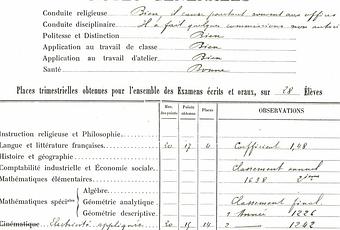 Conduite religieuse Bien, il cause pourtant souvent aux offices
Conduite disciplinaire Il a fait quelques commissions non autori
Politesse et Distinction Bien
Application au travail de classe Bien
Application au travail d'atelier Bien
Santé Bonne
Places trimestrielles obtenues pour l'ensemble des Examens écrits et oraux, sur 28 Élèves
Max. des points Points obtenus Places OBSERVATIONS
Instruction religieuse et Philosophie
Langue et littérature françaises 20 17 4 Coefficient 1,48
Histoire et géographie
Comptabilité industrielle et Économie sociale Classement annuel
Mathématiques élémentaires 1638 2
Mathématiques spéciales Algèbre
Géométrie analytique Classement final
Géométrie descriptive 1 Année 1226
Cinématique Electricité appliquée 20 15 14 2 1242